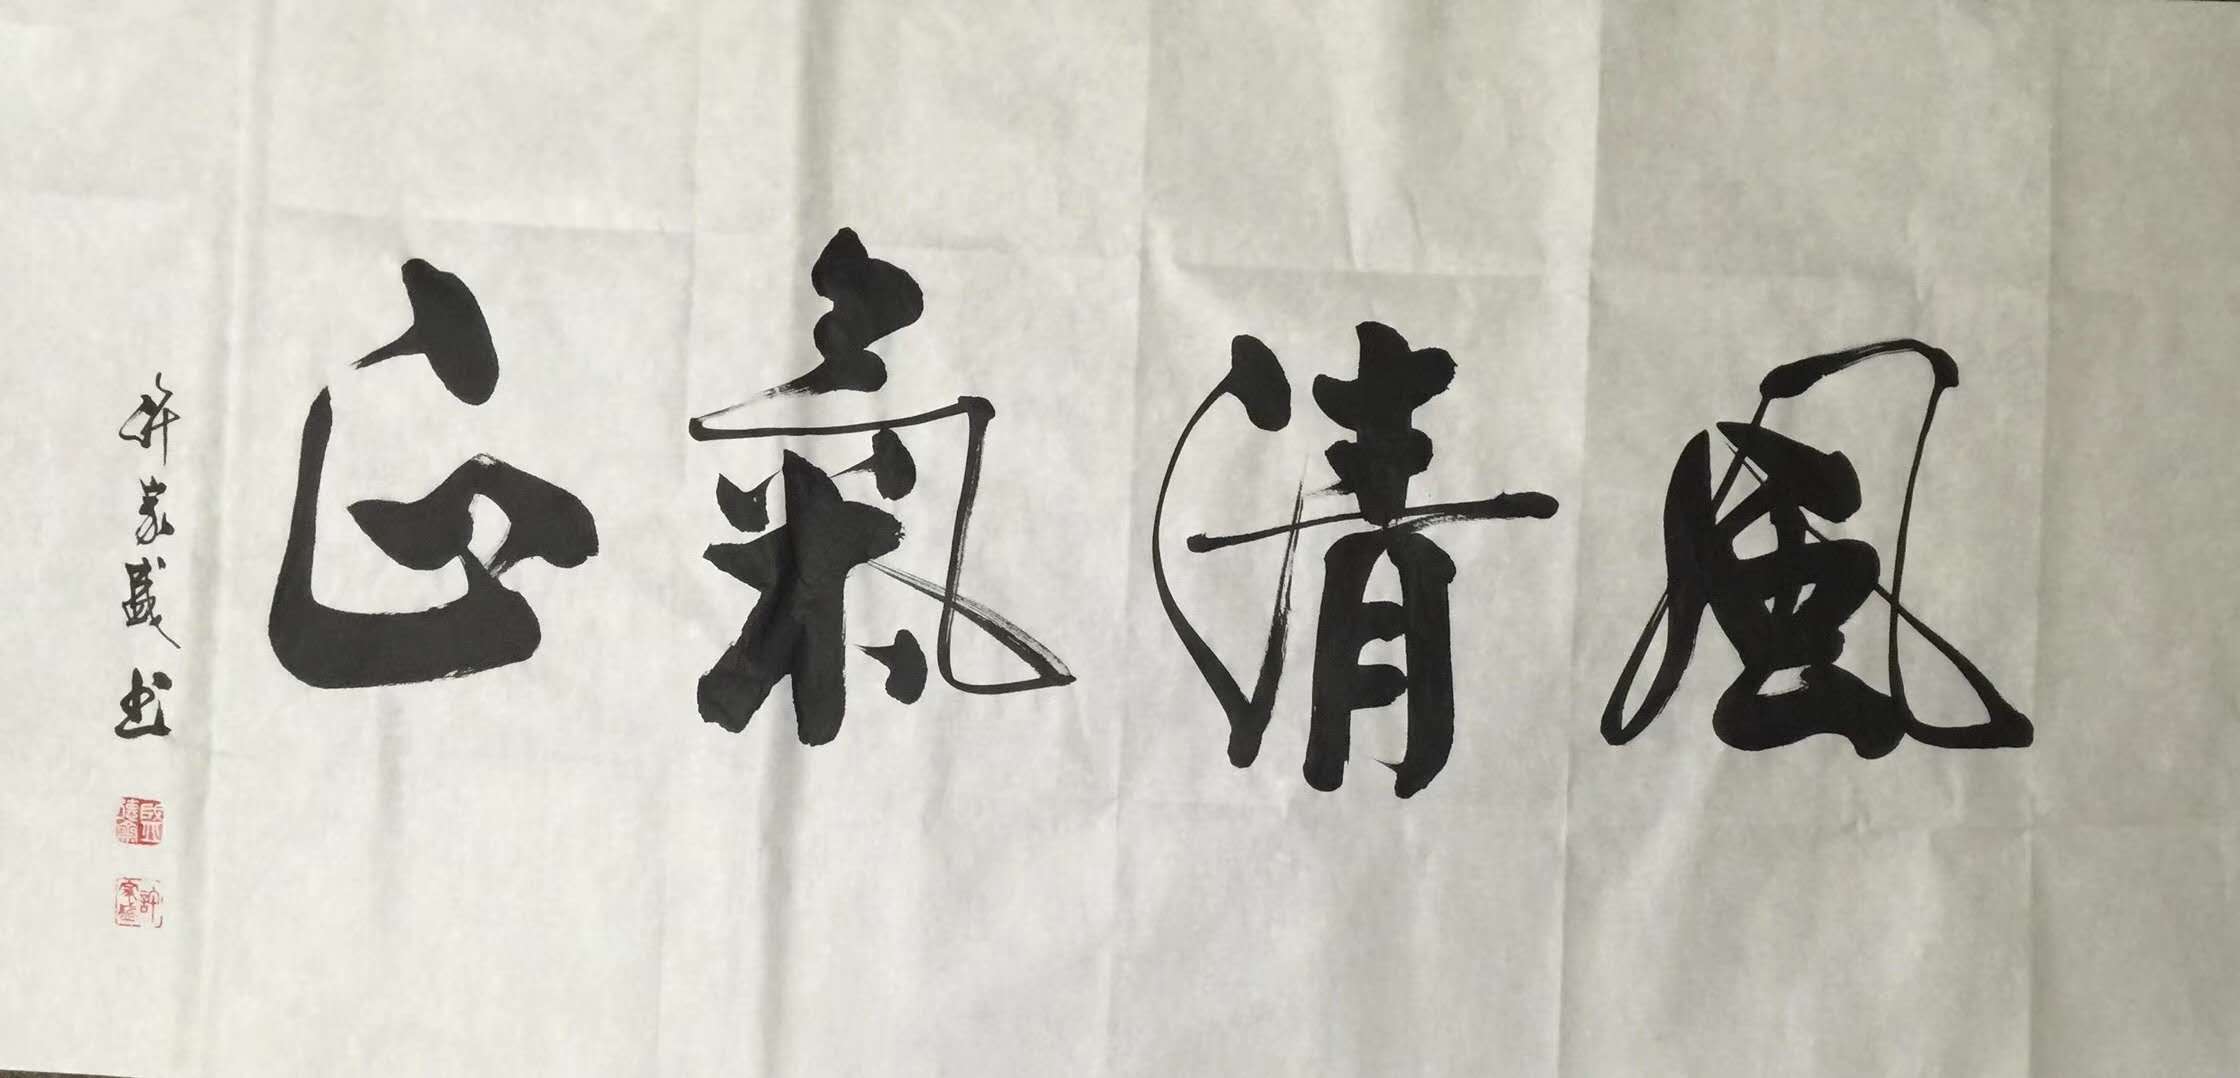 風清氣正
許家盛书
許家盛